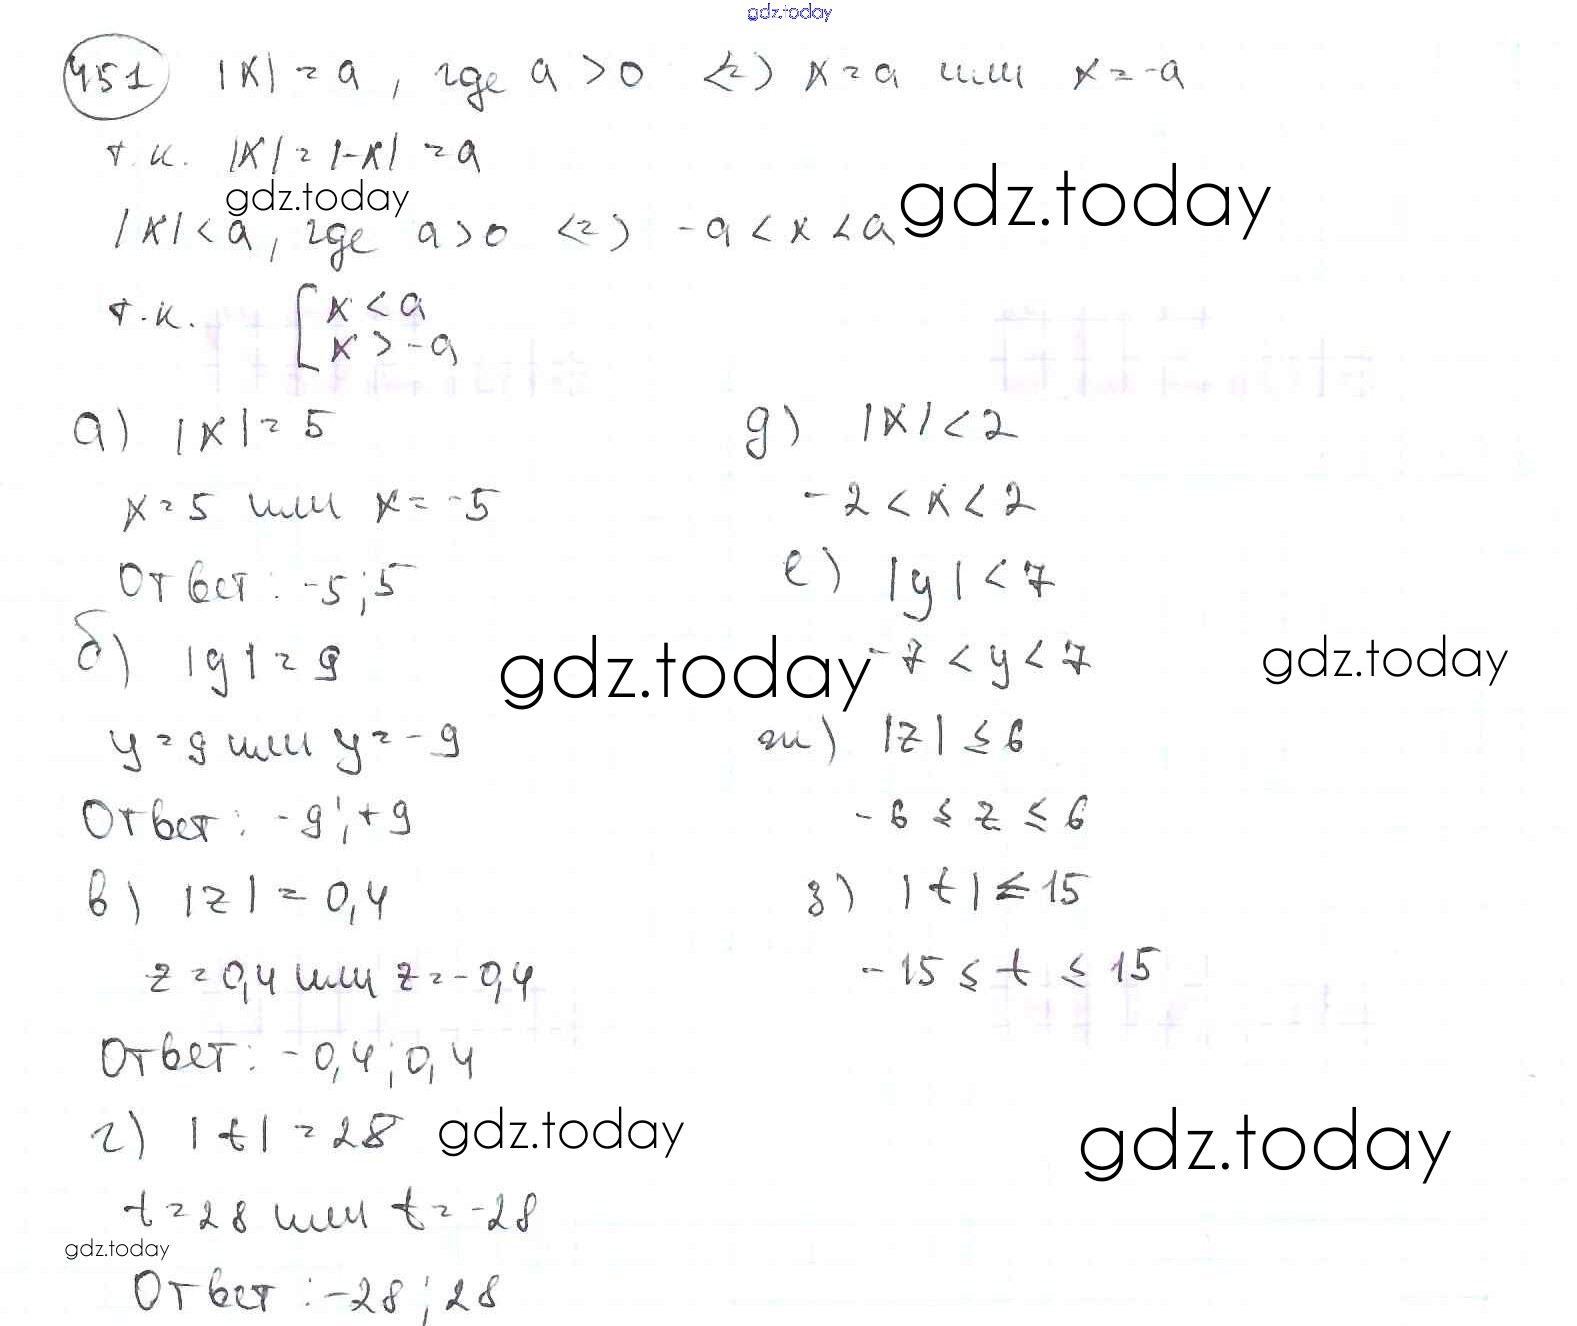 gdz.today
451 |x| = a, где a > 0 <=> x = a или x = -a
т.к. |x| = |-x| = a
gdz.today
gdz.today
|x| < a, где a > 0 <=> -a < x < a
т.к. [ x < a
x > -a
а) |x| = 5
x = 5 или x = -5
Ответ: -5; 5
б) |y| = 9
gdz.today
y = 9 или y = -9
Ответ: -9; +9
в) |z| = 0,4
z = 0,4 или z = -0,4
Ответ: -0,4; 0,4
г) |t| = 28
gdz.today
t = 28 или t = -28
gdz.today
Ответ: -28; 28
д) |x| < 2
-2 < x < 2
е) |y| < 7
-7 < y < 7
gdz.today
ж) |z| ≤ 6
-6 ≤ z ≤ 6
з) |t| ≤ 15
-15 ≤ t ≤ 15
gdz.today